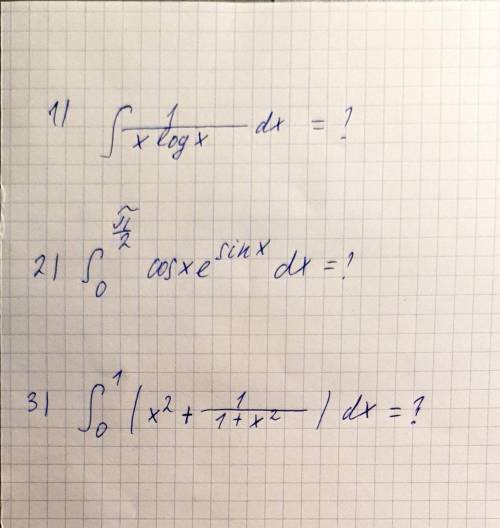 1) ∫ 1/(x log x) dx = ?
2) ∫₀^(π/2) cosx e^(sinx) dx = ?
3) ∫₀^1 (x² + 1/(1+x²)) dx = ?